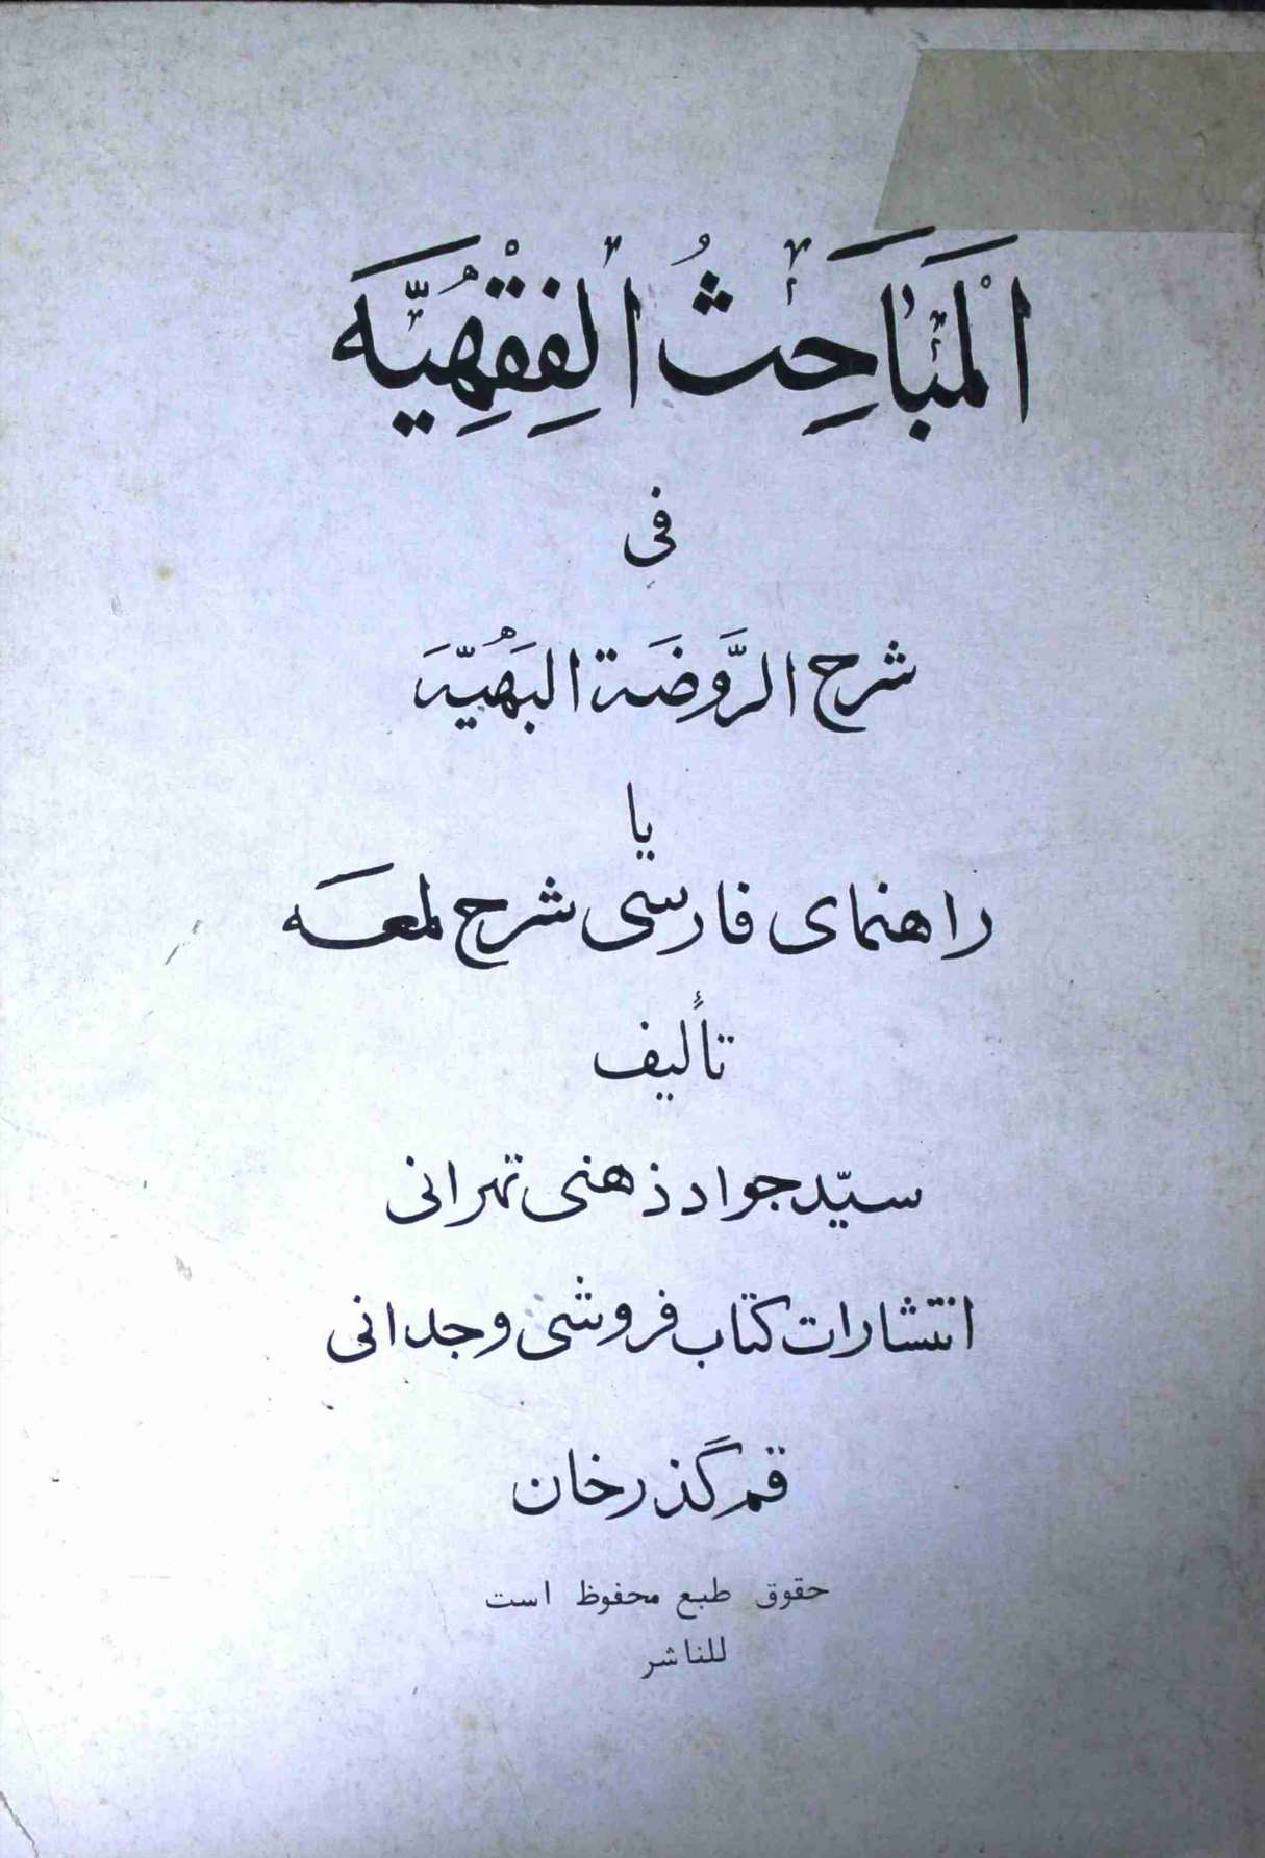 اَلْمَبَاحِثُ الْفِقْهِيَّه
فی
شرح الرَّوضَة البَهيَّة
یا
راهنمای فارسی شرح لمعه
تألیف
سیّد جواد ذهنی تهرانی
انتشارات کتاب فروشی وجدانی
قم گذرخان
حقوق طبع محفوظ است
للناشر